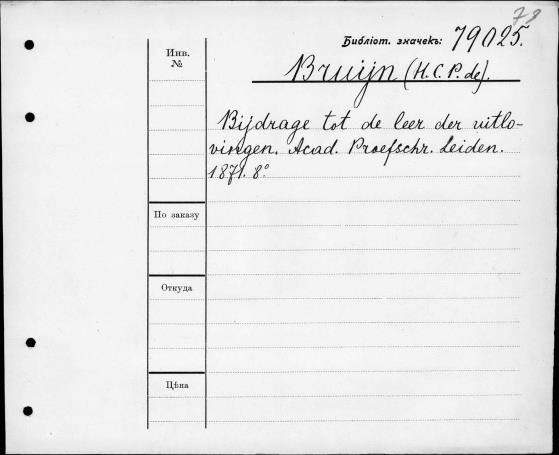 78
Библіот. значекъ: 79025.
Инв.
№
Bruijn (H. C. P. de).
Bijdrage tot de leer der uitlo-
vingen. Acad. Proefschr. Leiden.
1871. 8°
По заказу
Откуда
Цѣна